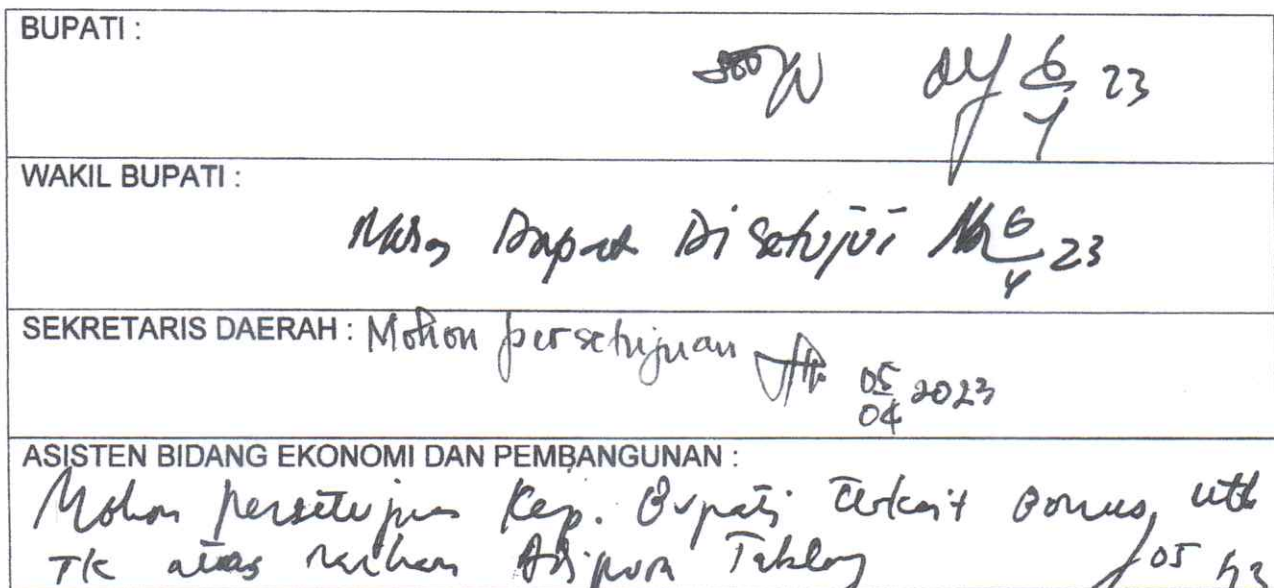 BUPATI :
6/4 23
WAKIL BUPATI :
Dapat Di Setujui 6/4 23
SEKRETARIS DAERAH : Mohon persetujuan 05/04 2023
ASISTEN BIDANG EKONOMI DAN PEMBANGUNAN :
Mohon persetujuan Kep. Bupati terkait Bonus utk
TK atas raihan Adipura 05